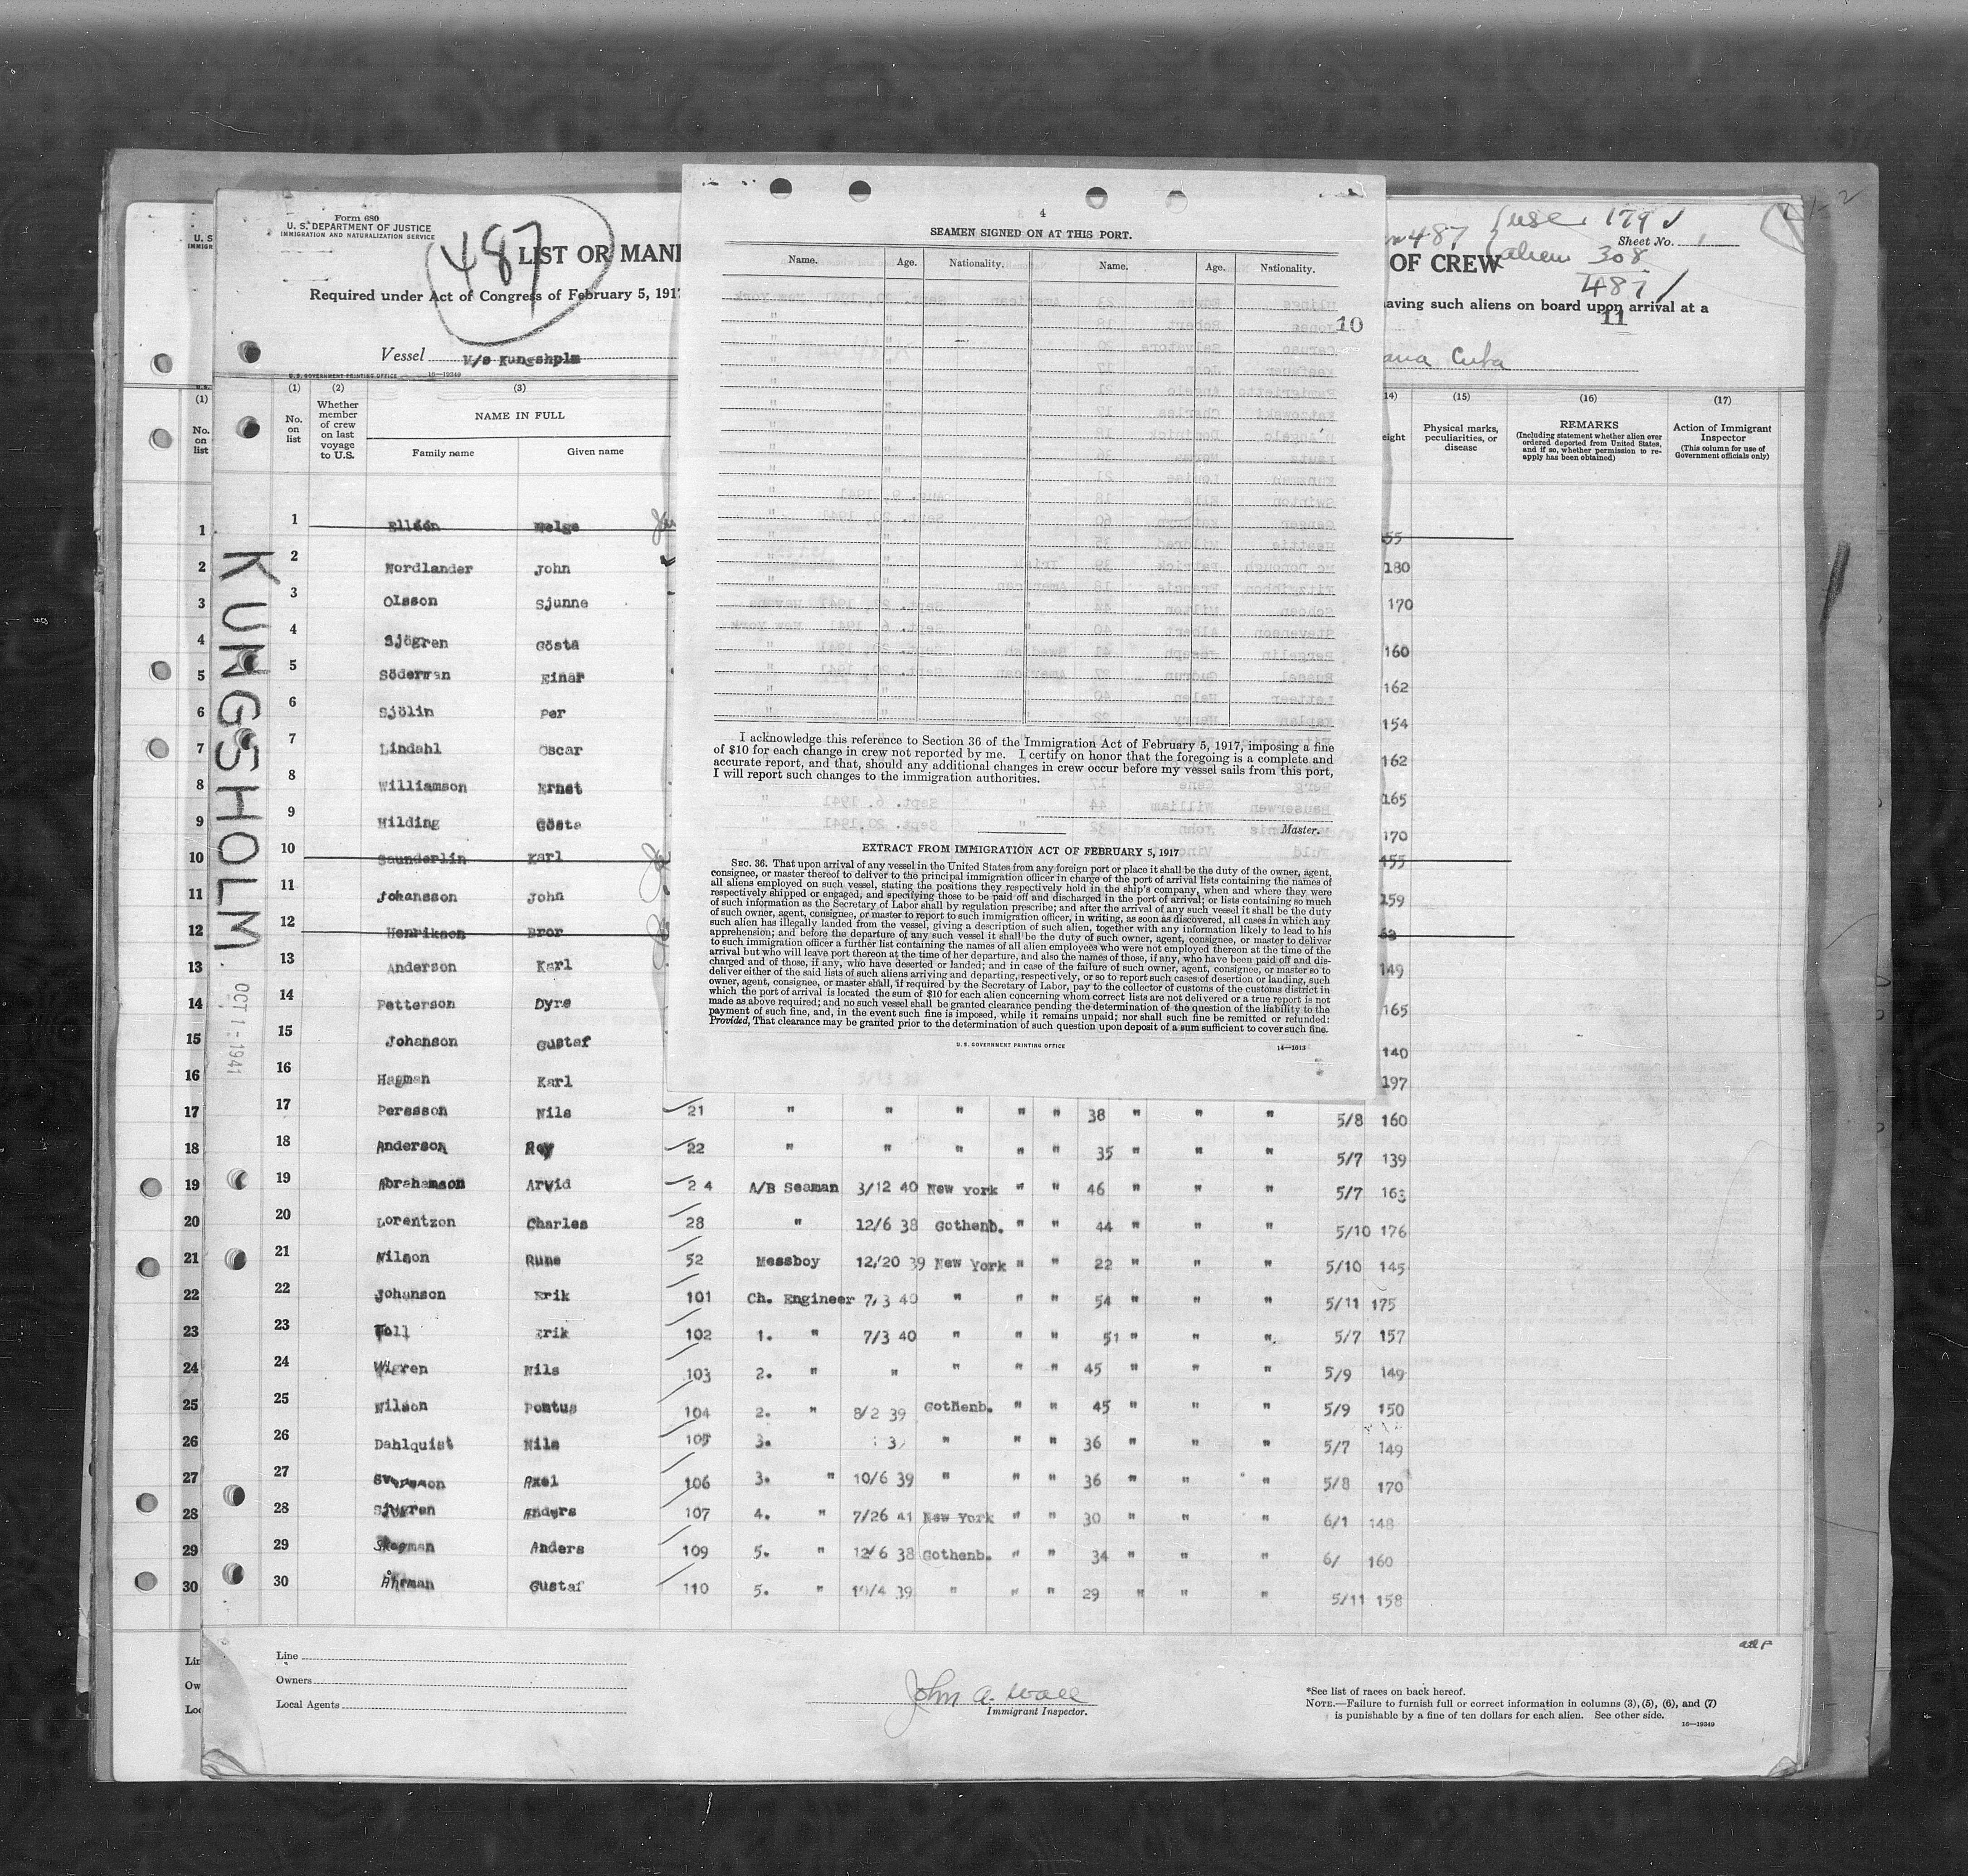 Form 680
U. S. DEPARTMENT OF JUSTICE
IMMIGRATION AND NATURALIZATION SERVICE
487
LIST OR MANI
Required under Act of Congress of February 5, 191
Vessel M/s Kungshplm
U. S. GOVERNMENT PRINTING OFFICE 16—19349
487
use 179
alien 308
487
Sheet No. 1
OF CREW
having such aliens on board upon arrival at a
11
ana Cuba
U. S
IMMIGR
(1)
No. on list
(1) (2) (3)
No. on list
Whether member of crew on last voyage to U.S.
NAME IN FULL
Family name Given name
14) (15) (16) (17)
eight
Physical marks, peculiarities, or disease
REMARKS
(Including statement whether alien ever ordered deported from United States, and if so, whether permission to re-apply has been obtained)
Action of Immigrant Inspector
(This column for use of Government officials only)
KUNGSHOLM
OCT 1 - 1941
4
SEAMEN SIGNED ON AT THIS PORT.
Name. Age. Nationality. Name. Age. Nationality.
10
I acknowledge this reference to Section 36 of the Immigration Act of February 5, 1917, imposing a fine
of $10 for each change in crew not reported by me. I certify on honor that the foregoing is a complete and
accurate report, and that, should any additional changes in crew occur before my vessel sails from this port,
I will report such changes to the immigration authorities.
Master.
EXTRACT FROM IMMIGRATION ACT OF FEBRUARY 5, 1917
SEC. 36. That upon arrival of any vessel in the United States from any foreign port or place it shall be the duty of the owner, agent,
consignee, or master thereof to deliver to the principal immigration officer in charge of the port of arrival lists containing the names of
all aliens employed on such vessel, stating the positions they respectively hold in the ship's company, when and where they were
respectively shipped or engaged, and specifying those to be paid off and discharged in the port of arrival; or lists containing so much
of such information as the Secretary of Labor shall by regulation prescribe; and after the arrival of any such vessel it shall be the duty
of such owner, agent, consignee, or master to report to such immigration officer, in writing, as soon as discovered, all cases in which any
such alien has illegally landed from the vessel, giving a description of such alien, together with any information likely to lead to his
apprehension; and before the departure of any such vessel it shall be the duty of such owner, agent, consignee, or master to deliver
to such immigration officer a further list containing the names of all alien employees who were not employed thereon at the time of the
arrival but who will leave port thereon at the time of her departure, and also the names of those, if any, who have been paid off and dis-
charged and of those, if any, who have deserted or landed; and in case of the failure of such owner, agent, consignee, or master so to
deliver either of the said lists of such aliens arriving and departing, respectively, or so to report such cases of desertion or landing, such
owner, agent, consignee, or master shall, if required by the Secretary of Labor, pay to the collector of customs of the customs district in
which the port of arrival is located the sum of $10 for each alien concerning whom correct lists are not delivered or a true report is not
made as above required; and no such vessel shall be granted clearance pending the determination of the question of the liability to the
payment of such fine, and, in the event such fine is imposed, while it remains unpaid; nor shall such fine be remitted or refunded:
Provided, That clearance may be granted prior to the determination of such question upon deposit of a sum sufficient to cover such fine.
U. S. GOVERNMENT PRINTING OFFICE 14—1613
1 1 Helge 55
2 2 Nordlander John 180
3 3 Olsson Sjunne 170
4 4 Sjögren Gösta 160
5 5 Söderman Einar 162
6 6 Sjölin Per 154
7 7 Lindahl Oscar 162
8 8 Williamson Ernst 165
9 9 Hilding Gösta 170
10 10 Saunderlin Karl 155
11 11 Johansson John 159
12 12 Henrikson Bror
13 13 Anderson Karl 149
14 14 Petterson Dyre 165
15 15 Johanson Gustaf 140
16 16 Hagman Karl 197
17 17 Persson Nils 21 " " " " " 38 " " " 5/8 160
18 18 Anderson Roy 22 " " " " " 35 " " " 5/7 139
19 19 Abrahamson Arvid 24 A/B Seaman 3/12 40 New York " " 46 " " " 5/7 163
20 20 Lorentzon Charles 28 " 12/6 38 Gothenb. " " 44 " " " 5/10 176
21 21 Nilson Rune 52 Messboy 12/20 39 New York " " 22 " " " 5/10 145
22 22 Johanson Erik 101 Ch. Engineer 7/3 40 " " " 54 " " " 5/11 175
23 23 Toll Erik 102 1. " 7/3 40 " " " 51 " " " 5/7 157
24 24 Wigren Nils 103 2. " " " " " 45 " " " 5/9 149
25 25 Nilson Pontus 104 2. " 8/2 39 Gothenb. " " 45 " " " 5/9 150
26 26 Dahlquist Nils 105 3. " " " 36 " " " 5/7 149
27 27 Axel 106 3. " 10/6 39 " " " 36 " " " 5/8 170
28 28 Sjögren Anders 107 4. " 7/26 41 New York " " 30 " " " 6/1 148
29 29 Anders 109 5. " 12/6 38 Gothenb. " " 34 " " " 6/ 160
30 30 Åhrman Gustaf 110 5. " 10/4 39 " " " 29 " " " 5/11 158
Lin
Ow
Loc
Line
Owners
Local Agents
John A. Wall
Immigrant Inspector.
*See list of races on back hereof.
NOTE.—Failure to furnish full or correct information in columns (3), (5), (6), and (7)
is punishable by a fine of ten dollars for each alien. See other side.
16—19349